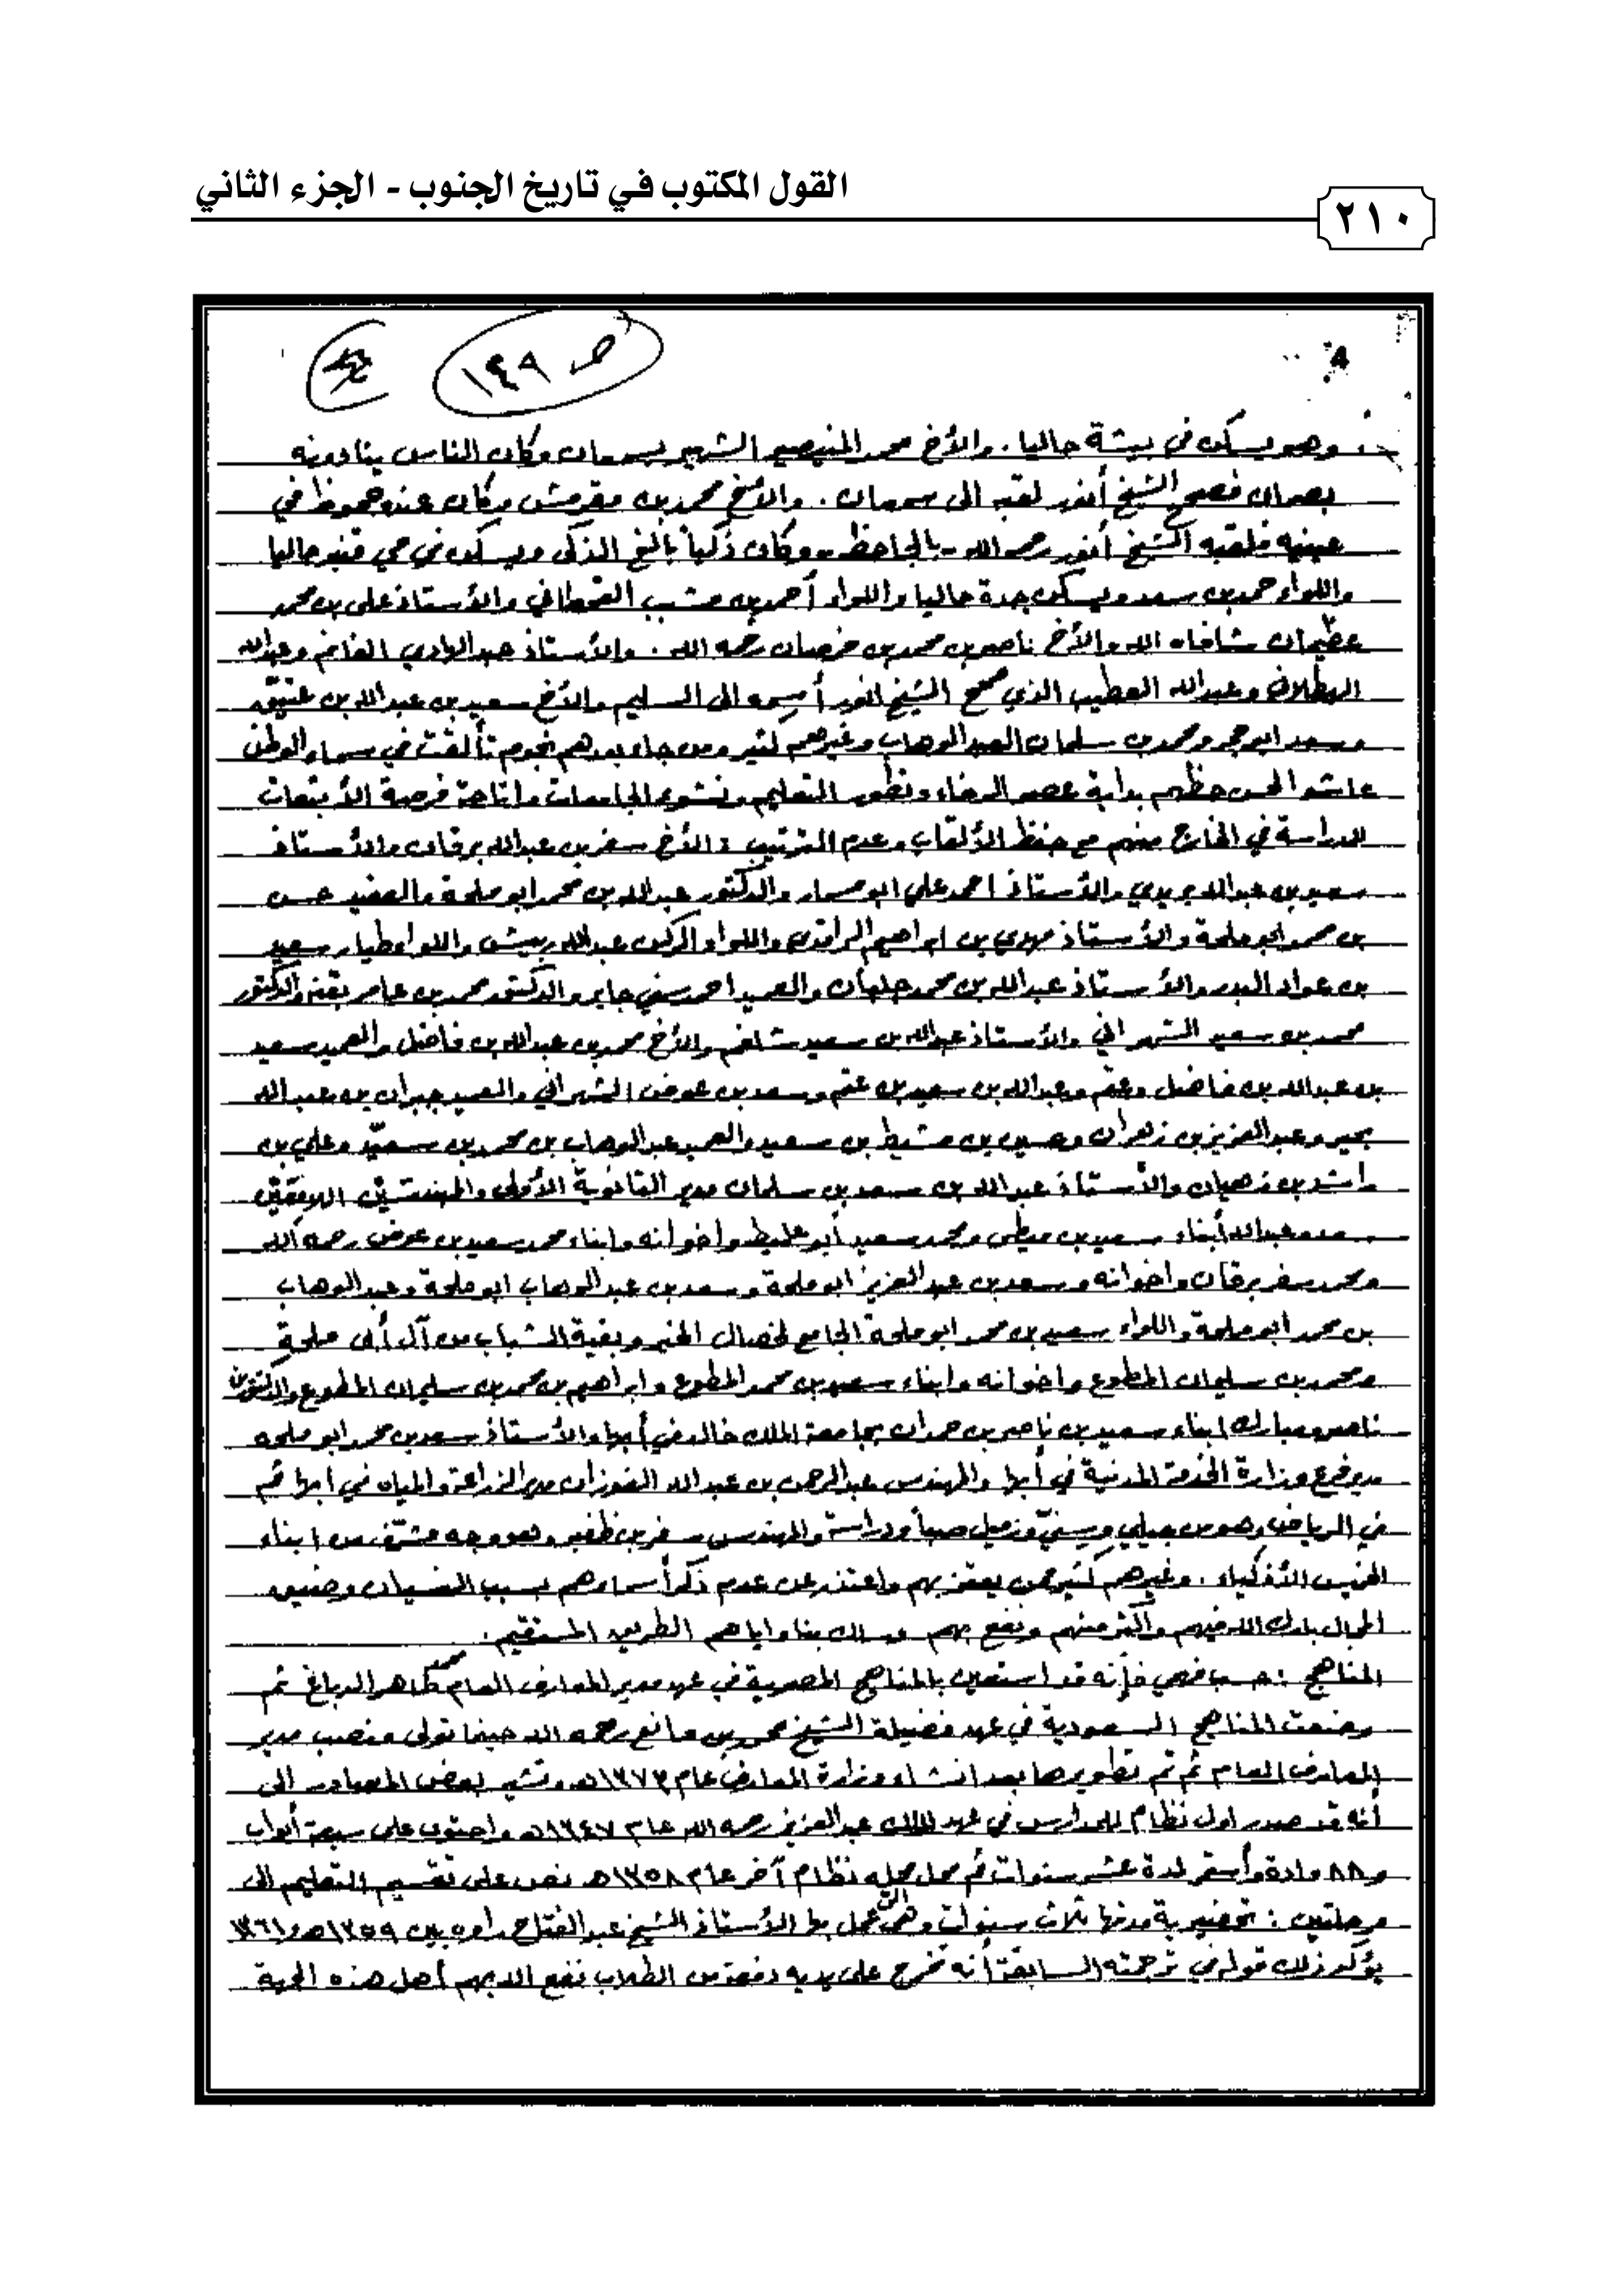 القول المكتوب في تاريخ الجنوب - الجزء الثاني
٢١٠
ص ١٤٩
وهو يسكن في بيشة حاليا . والأخ محمد الشهير بسمعان وكان الناس ينادونه
بصمان فصحح الشيخ أنور لقبه الى سمعان . والأخ محمد بن مقرمش وكان عنده جحوظ في
عينيه فلقبه الشيخ أنور رحمه الله - بالجاحظ - وكان ذكياً ويسكن في حاليا
واللواء حمد بن سعد ويسكن جدة حاليا واللواء أحمد بن مشبب القحطاني والأستاذ علي بن محمد
شافاه الله والأخ ناصر بن محمد بن رحمه الله . والأستاذ عبدالهادي الغانم وعبدالله
وعبدالله العطيب الذي صحح الشيخ انور أسمه الى السليم والأخ سعيد بن عبدالله بن عتيق
وسعد ابو حجر ومحمد بن سلمان العبدالوهاب وغيرهم كثير ومن جاء بعدهم نجوم تألقت في سماء الوطن
عاشوا لحسن حظهم بداية عصر الرخاء وتطور التعليم ونشوء الجامعات وإتاحة فرصة الأبتعاث
للدراسة في الخارج منهم مع حفظ الألقاب وعدم الترتيب : الأخ سفر بن عبدالله برقان والأستاذ
سعيد بن عبدالله بريدي والأستاذ احمد علي ابو مسمار والدكتور عبدالله بن محمد ابو ملحة والعقيد حسن
بن محمد ابو ملحة والأستاذ مهدي بن ابراهيم الراقدي واللواء الركن عبدالله واللواء طيار سعيد
بن عواد البدر والأستاذ عبدالله بن محمد جلبان والعميد احمد جابر والدكتور محمد بن عامر والدكتور
محمد بن سعيد الشهراني والأستاذ عبدالله بن سعيد والأخ محمد بن عبدالله بن فاضل والعميد سعيد
بن عبدالله بن فاضل وعبدالله بن سعيد بن وسعد بن عوض الشهراني والعميد جبران بن عبدالله
بجير وعبدالعزيز بن زهران وحسين بن مشيط بن سعيد والعميد عبدالوهاب بن محمد بن وعلي بن
راشد بن والأستاذ عبدالله بن سعد بن سلمان مدير الثانوية الأولى والمهندسين
سعد وعبدالله أبناء سعيد بن ومحمد سعيد أبو غليط واخوانه وابناء محمد سعيد بن عوض رحمه الله
ومحمد سفر برقان واخوانه وسعد بن عبدالعزيز ابو ملحة وسعد بن عبدالوهاب ابو ملحة وعبدالوهاب
بن محمد ابو ملحة واللواء سعيد بن محمد ابو ملحة الجامع لخصال الخير وبقية الشباب من آل أبي ملحة
ومحمد بن سليمان المطوع واخوانه وابناء سعيد بن محمد المطوع وابراهيم بن محمد بن سليمان المطوع والدكتورين
ناصر ومبارك ابناء سعيد بن ناصر بن حمدان بجامعة الملك خالد في أبها والأستاذ سعد بن محمد ابو ملحه
مدير فرع وزارة الخدمة المدنية في أبها والمهندس عبدالرحمن بن عبدالله الفوزان مدير الزراعة والمياه في ابها ثم
في الرياض وهو من جيلي وزميل صبا ودراسة والمهندس سفر بن ظفير وهو وجه مشرق من ابناء
الخميس الأذكياء . وغيرهم كثير ممن يعتز بهم واعتذر عن عدم ذكر أسماءهم بسبب النسيان وضيق
المجال بارك الله فيهم وأكثر منهم ونفع بهم وسلك بنا واياهم الطريق المستقيم .
المناهج : حسب فهمي فإنه قد استعين بالمناهج المصرية في عهد مدير المعارف العام محمد طاهر الدباغ ثم
وضعت المناهج السعودية في عهد فضيلة الشيخ محمد بن مانع رحمه الله حينما تولى منصب مدير
المعارف العام ثم تم تطويرها بعد انشاء وزارة المعارف عام ١٣٧٣هـ وتشير بعض المصادر الى
أنه قد صدر اول نظام للمدارس في عهد الملك عبدالعزيز رحمه الله عام ١٣٤٧هـ واحتوى على سبعة أبواب
و ٨٨ مادة وأستمر لمدة عشر سنوات ثم حل محله نظام آخر عام ١٣٥٨هـ نص على تقسيم التعليم الى
مرحلتين : تحضيرية مدتها ثلاث سنوات وهي التي عمل بها الأستاذ الشيخ عبدالفتاح راوه بين ١٣٥٩هـ و ١٣٦١
يؤكد ذلك قوله في ترجمته السابقة أنه تخرج على يديه دفعة من الطلاب نفع الله بهم أهل هذه الجهة